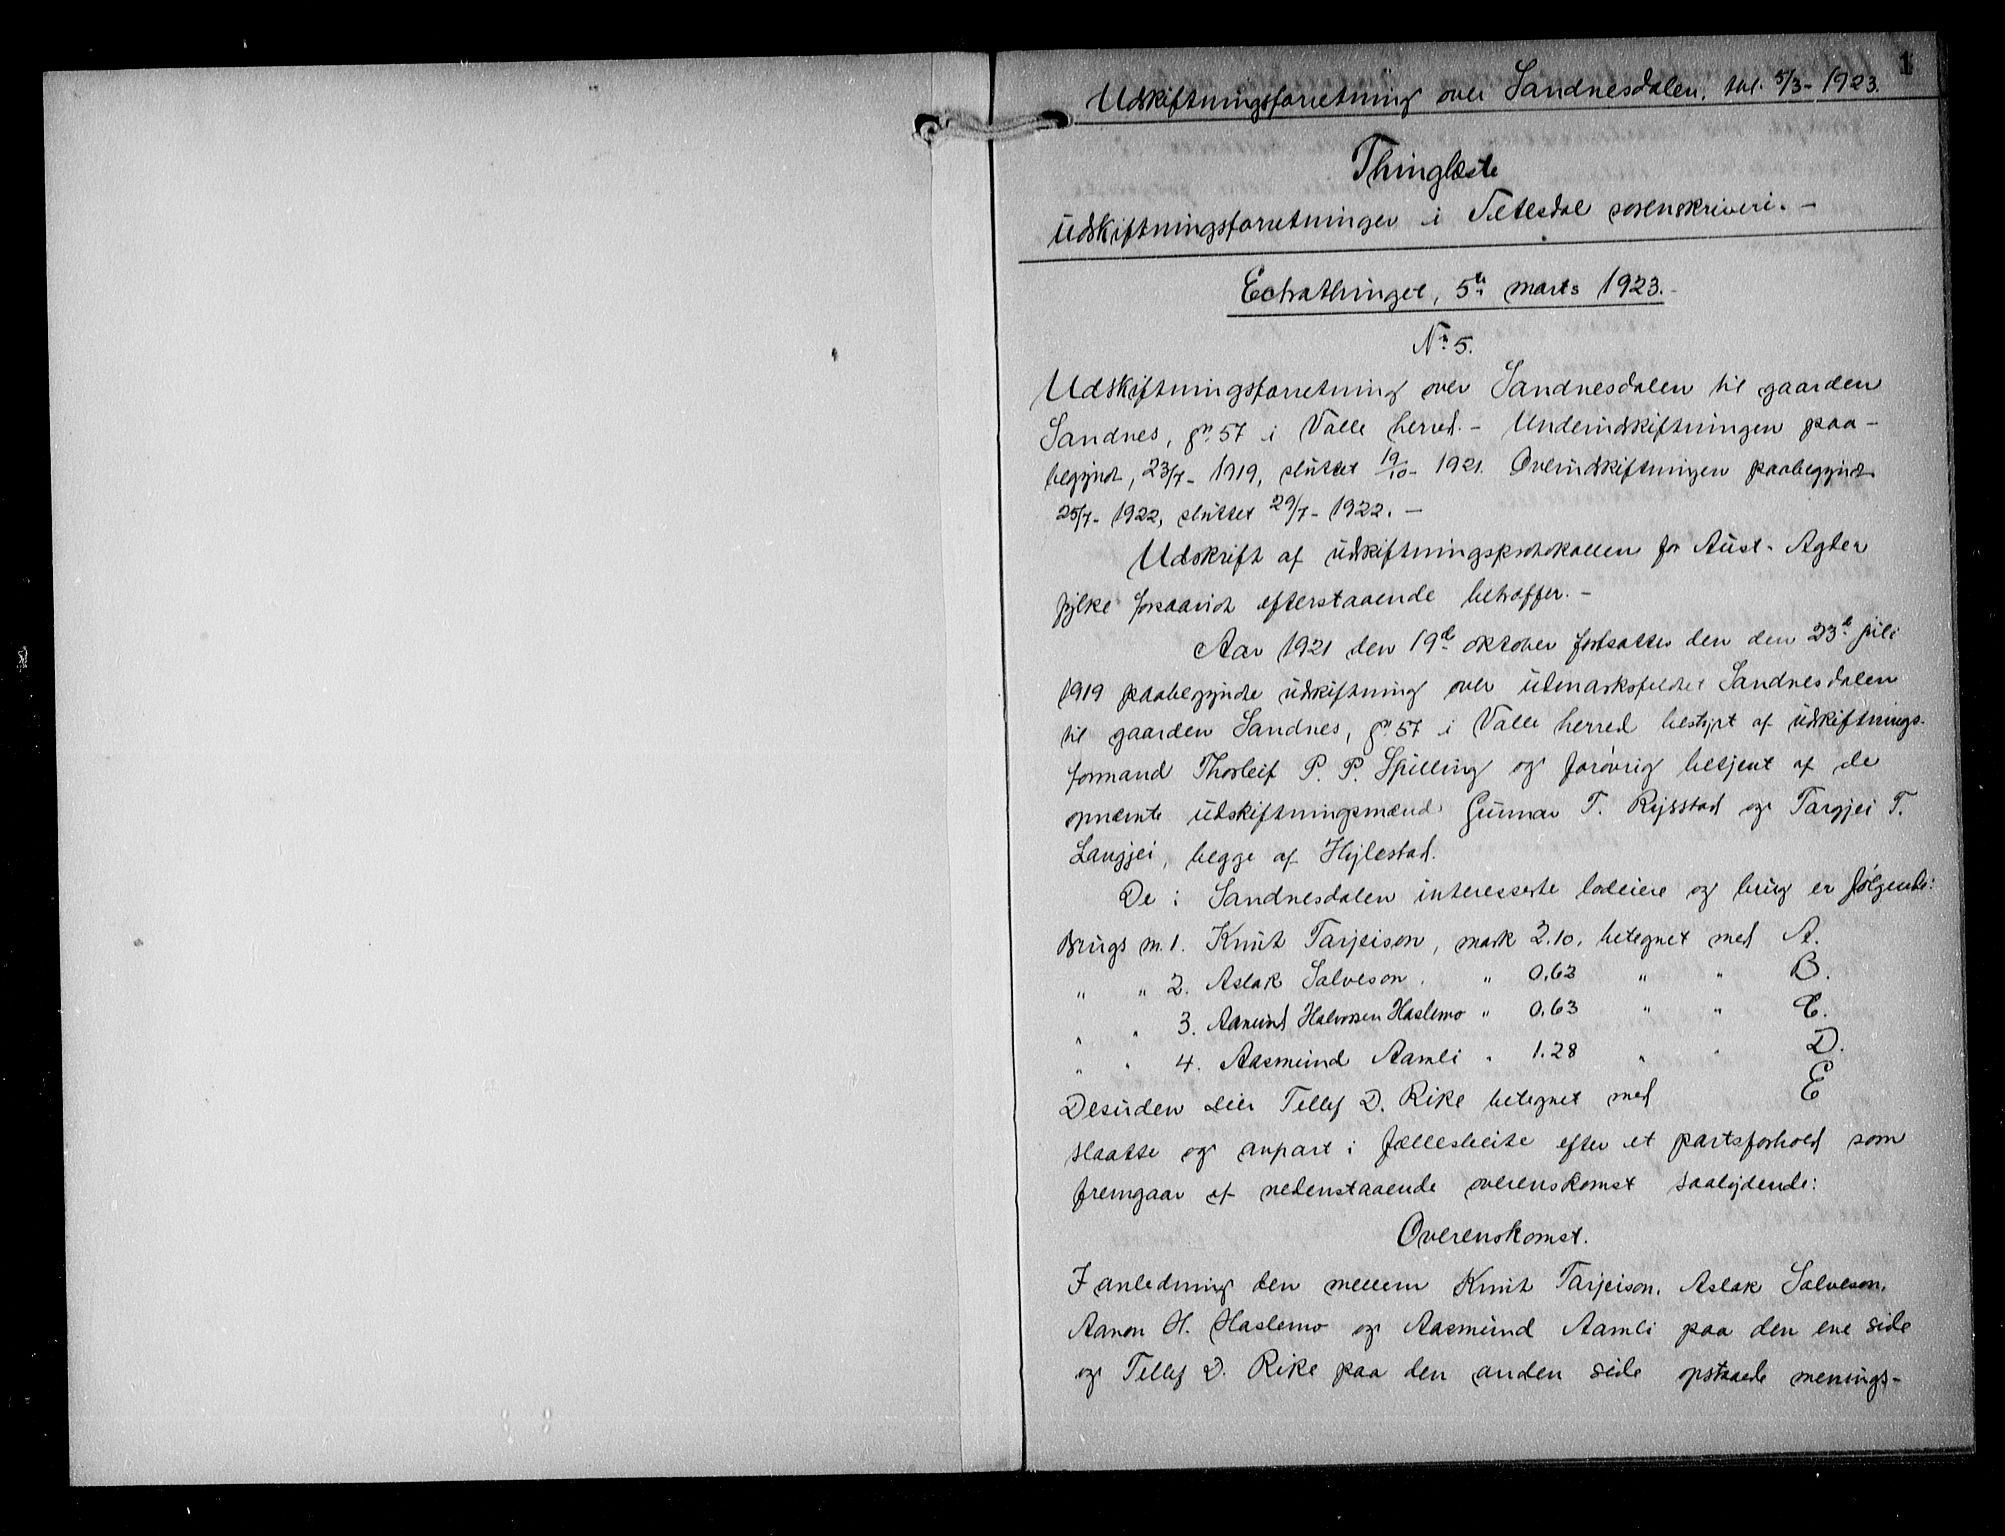 1
Udskiftningsforretning over Sandnesdalen. tal. 5/3- 1923.
Thinglæste
Udskiftningsforretninger i Setesdal sorenskriveri. -
Extrathinget, 5te marts 1923.-
No 5.
Udskiftningsforretning over Sandnesdalen til gaarden
Sandnes, gn. 57 i Valle herred. - Underudskiftningen paa-
begyndt, 23/7- 1919, sluttet 19/10- 1921. Overudskiftningen paabegyndt
25/7- 1922, sluttet 29/7- 1922. -
Udskrift af udskiftningsprotokollen for Aust-Agder
fylke forsaavidt efterstaaende betræffer. -
Aar 1921 den 19de oktober fortsattes den den 23de juli
1919 paabegyndte udskiftning over utmarksfeltet Sandnesdalen
til gaarden Sandnes, gn. 57 i Valle herred bestyrt af udskiftnings-
formand Thorleif P. P. Spilling og forøvrig betjent af de
opnævnte udskiftningsmænd Gunnar T. Rysstad og Targjei T.
Langjei, begge af Hylestad.
De i Sandnesdalen interesserte lodeiere og brug er følgende:
Brugs nr. 1. Knut Tarjeison, mark 2.10, betegnet med A.
" " 2. Aslak Salveson. " 0.62 " " B.
" " 3. Aanund Halvorsen Haslemo " 0.63 " " C.
" " 4. Aasmund Aamli " 1.28 " " D.
Desuden eier Tellef D. Rike betegnet med E
slaatte og anpart i fællesbeite efter et partsforhold som
fremgaar af nedenstaaende overenskomst saalydende:
Overenskomst.
I anledning den mellem Knut Tarjeison, Aslak Salveson,
Aanon H. Haslemo og Aasmund Aamli paa den ene side
og Tellef D. Rike paa den anden side opstaaede menings-